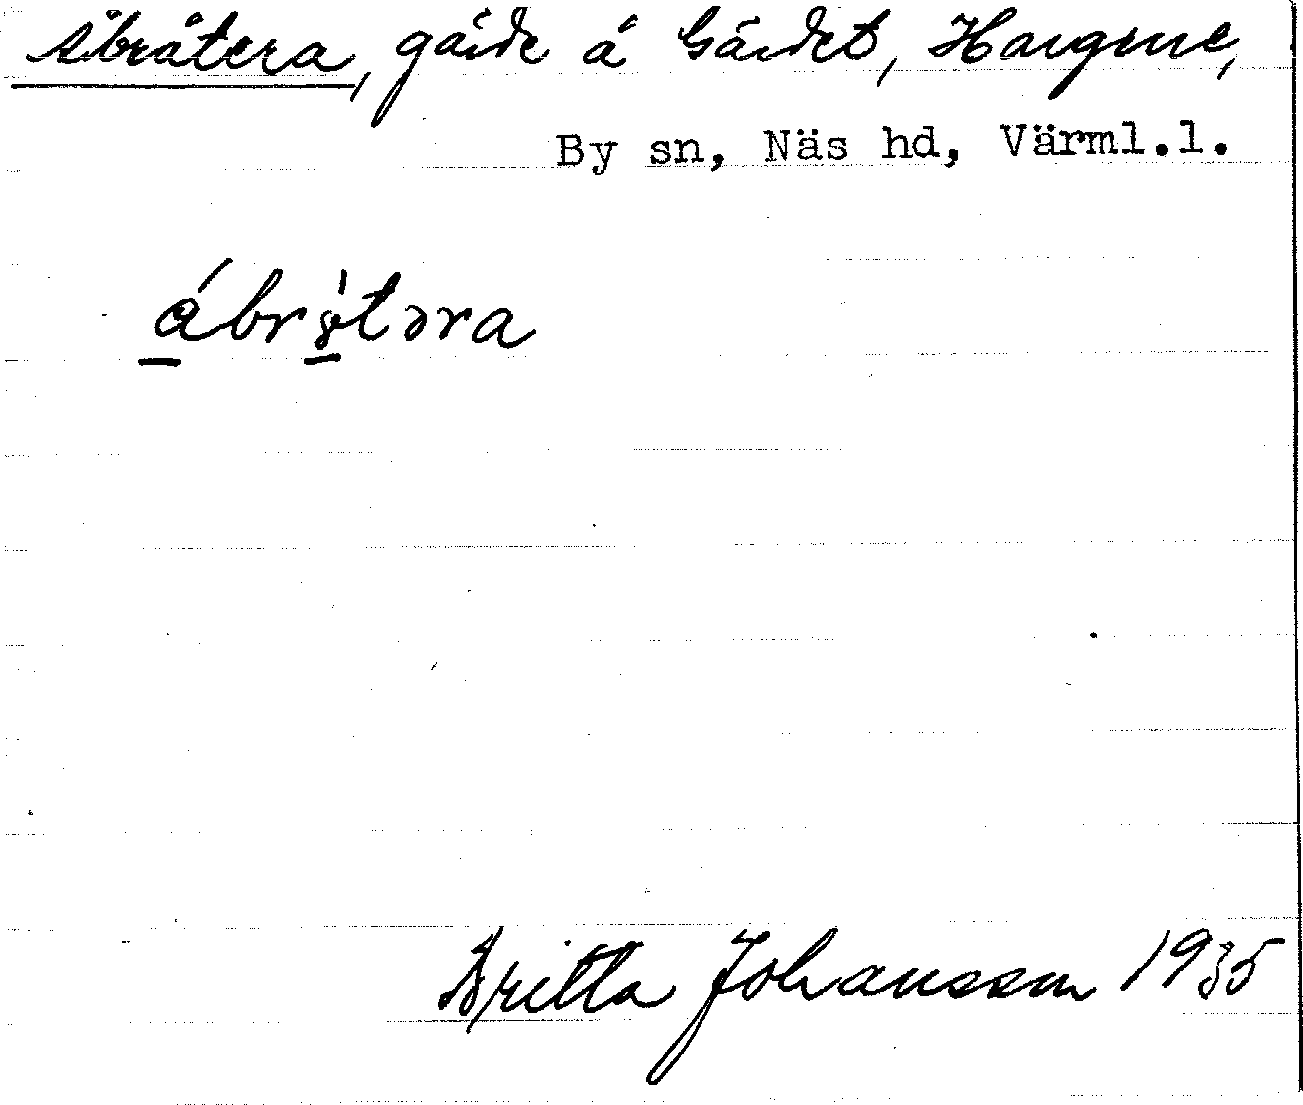 Åbråtera, gärde å Gärdet, Hargene,
By sn, Näs hd, Värml.l.
Britta Johansson 1935